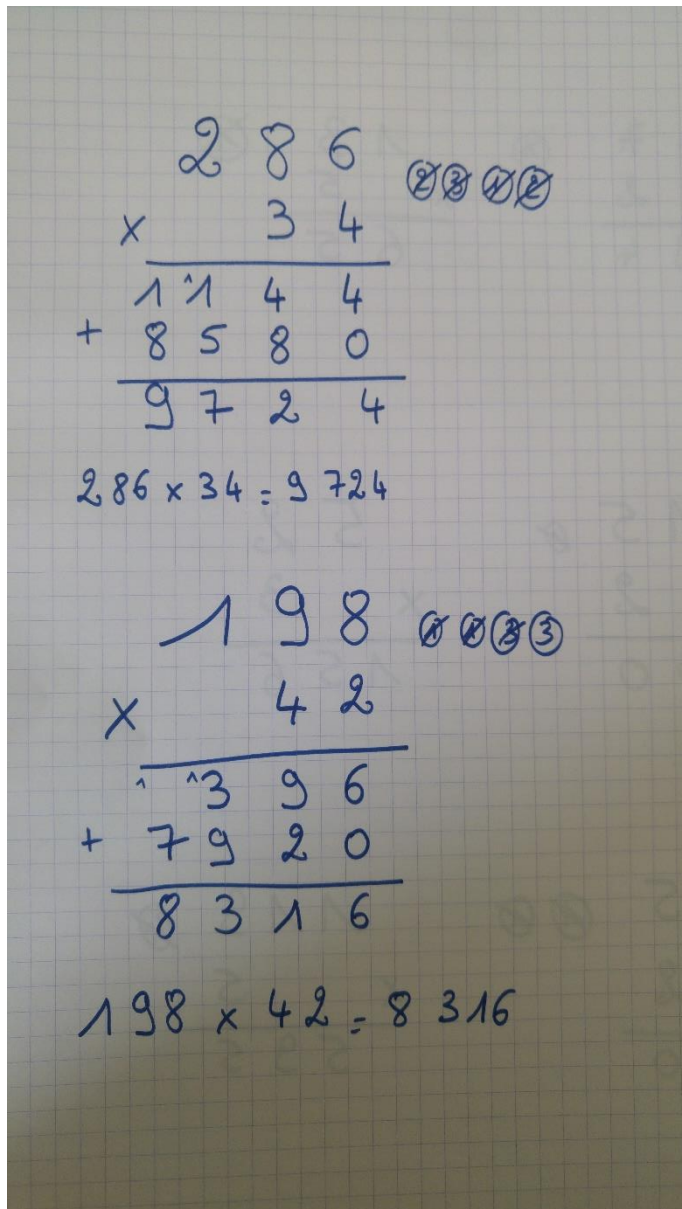 286
② ③ ① ②
× 34
1 ¹1 4 4
+ 8 5 8 0
9 7 2 4
286 × 34 = 9 724
198
① ① ③ ③
× 42
¹ ¹3 9 6
+ 7 9 2 0
8 3 1 6
198 × 42 = 8 316